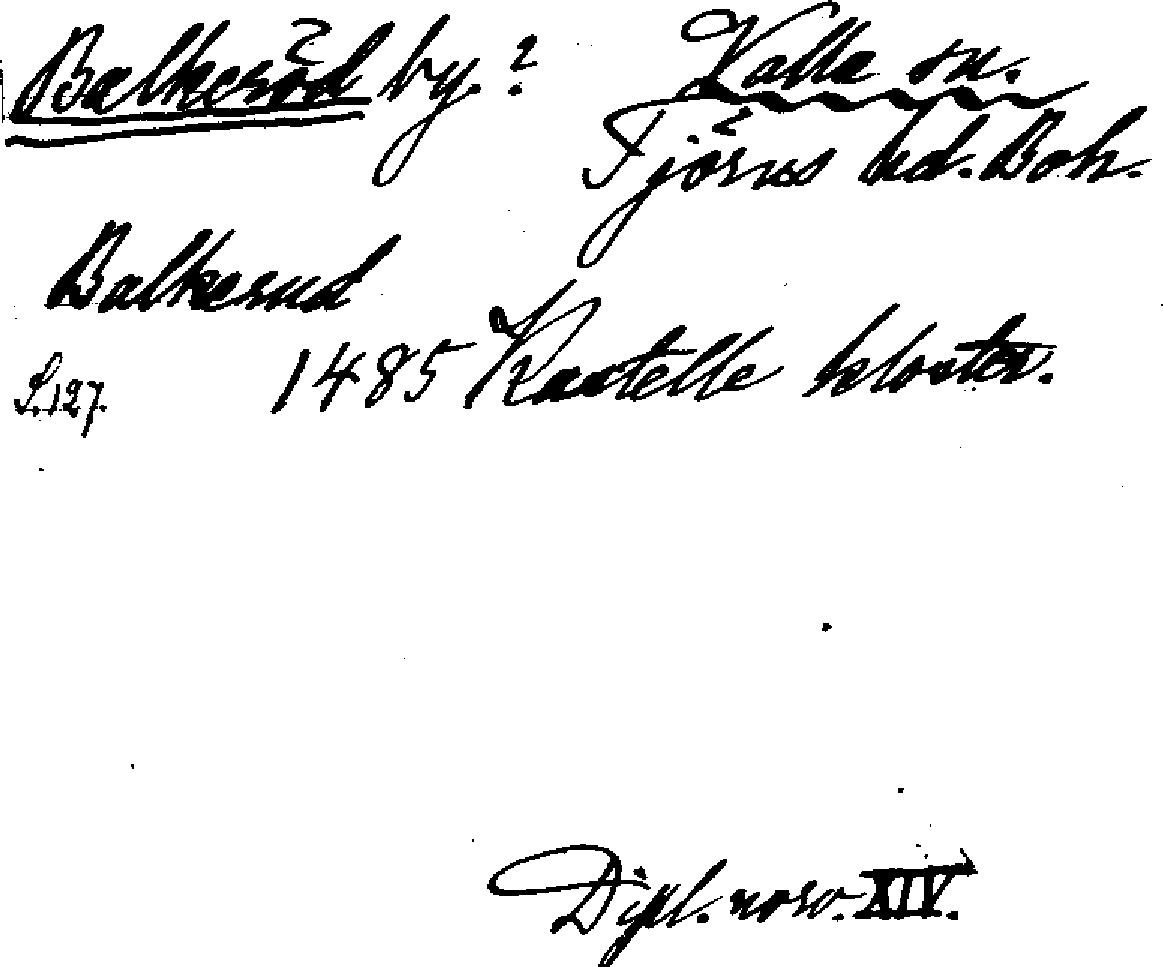 Balkeröd by.? Valla sn.
Tjörns hd. Boh.
Balkerud
1485 Kastelle kloster.
S. 127.
Dipl. norv. XIV.